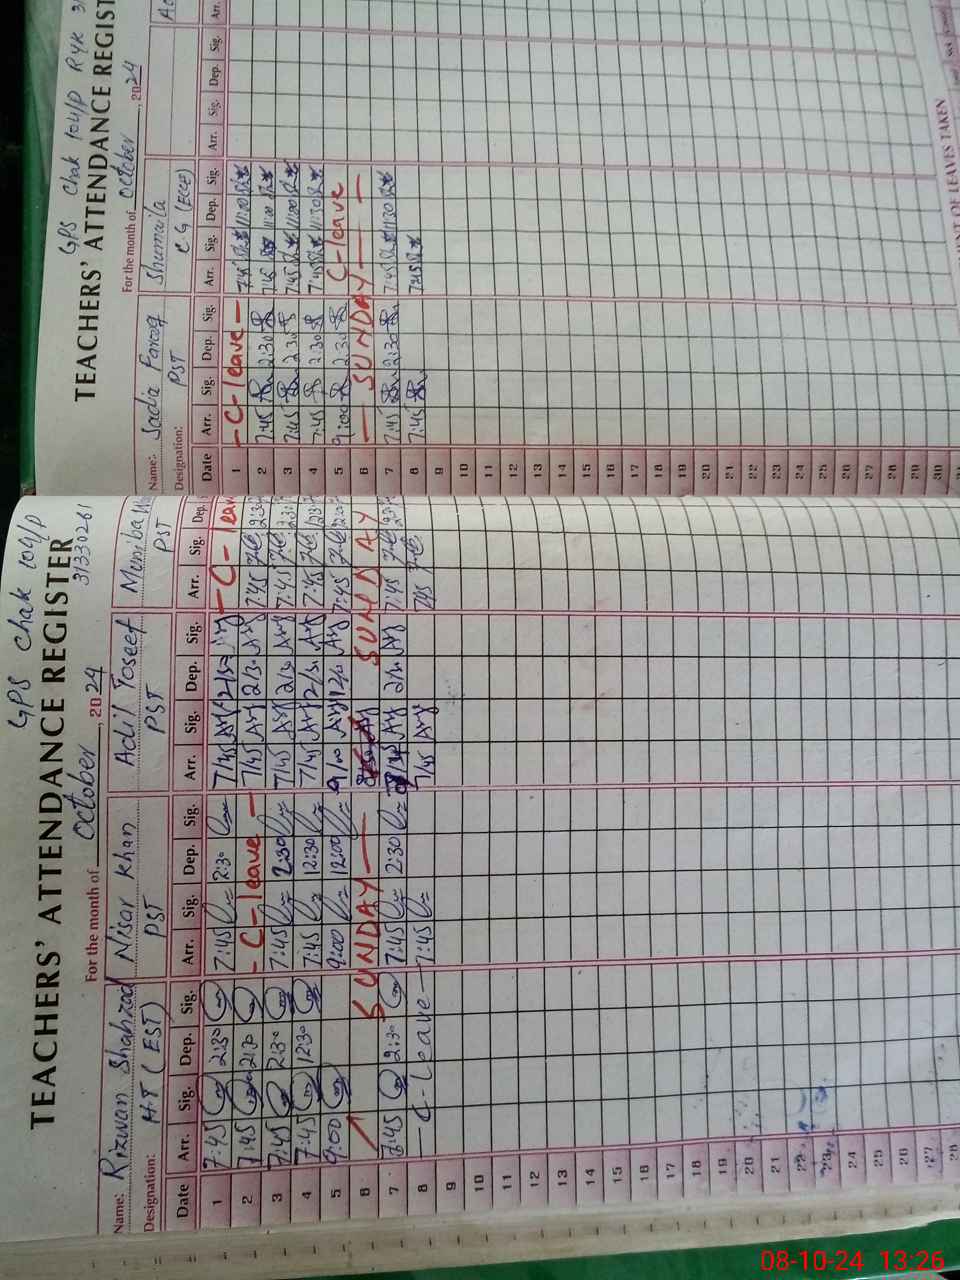 GPS Chak 104/P
TEACHERS' ATTENDANCE REGISTER
31330261
For the month of October, 2024
Name: Rizwan Shahzad Nisar Khan Adil Toseef Meniba
Designation: H.T (EST) PST PST PST
Date Arr. Sig. Dep. Sig. Arr. Sig. Dep. Sig. Arr. Sig. Dep. Sig. Arr. Sig. Dep.
1 7:45 2:30 7:45 2:30 7/45 2/30 - C - leave
2 7:45 2:30 - C-leave - 7/45 2/30 7:45 2:30
3 7:45 2:30 7:45 2:30 7/45 2/30 7:45 2:30
4 7:45 12:30 7:45 12:30 7/45 12/30 7:45 12:30
5 9:00 9:00 12:00 9/00 12/00 7:45
6 SUNDAY SUNDAY
7 7:45 2:30 7:45 2:30 7/45 2/30 7:45
8 - C-leave - 7:45 7/45 7:45
9
10
11
12
13
14
15
16
17
18
19
20
21
22
23
24
25
26
27
28
GPS Chak 104/P RYK
TEACHERS' ATTENDANCE REGIST
For the month of October, 2024
Name: Sadia Farooq Shumaila
Designation: PST C.G (ECCE)
Date Arr. Sig. Dep. Sig. Arr. Sig. Dep. Sig. Arr. Sig. Dep. Sig. Arr.
1 - C-leave - 7:45 11:00
2 7:45 2:30 7:45 11:00
3 7:45 2:30 7:45 11:00
4 7:45 2:30 7:45 11:30
5 9:00 2:30 C-leave
6 - SUNDAY - -
7 7:45 2:30 7:45 11:30
8 7:45 7:45
9
10
11
12
13
14
15
16
17
18
19
20
21
22
23
24
25
26
27
28
29
30
OF LEAVES TAKEN
08-10-24 13:26